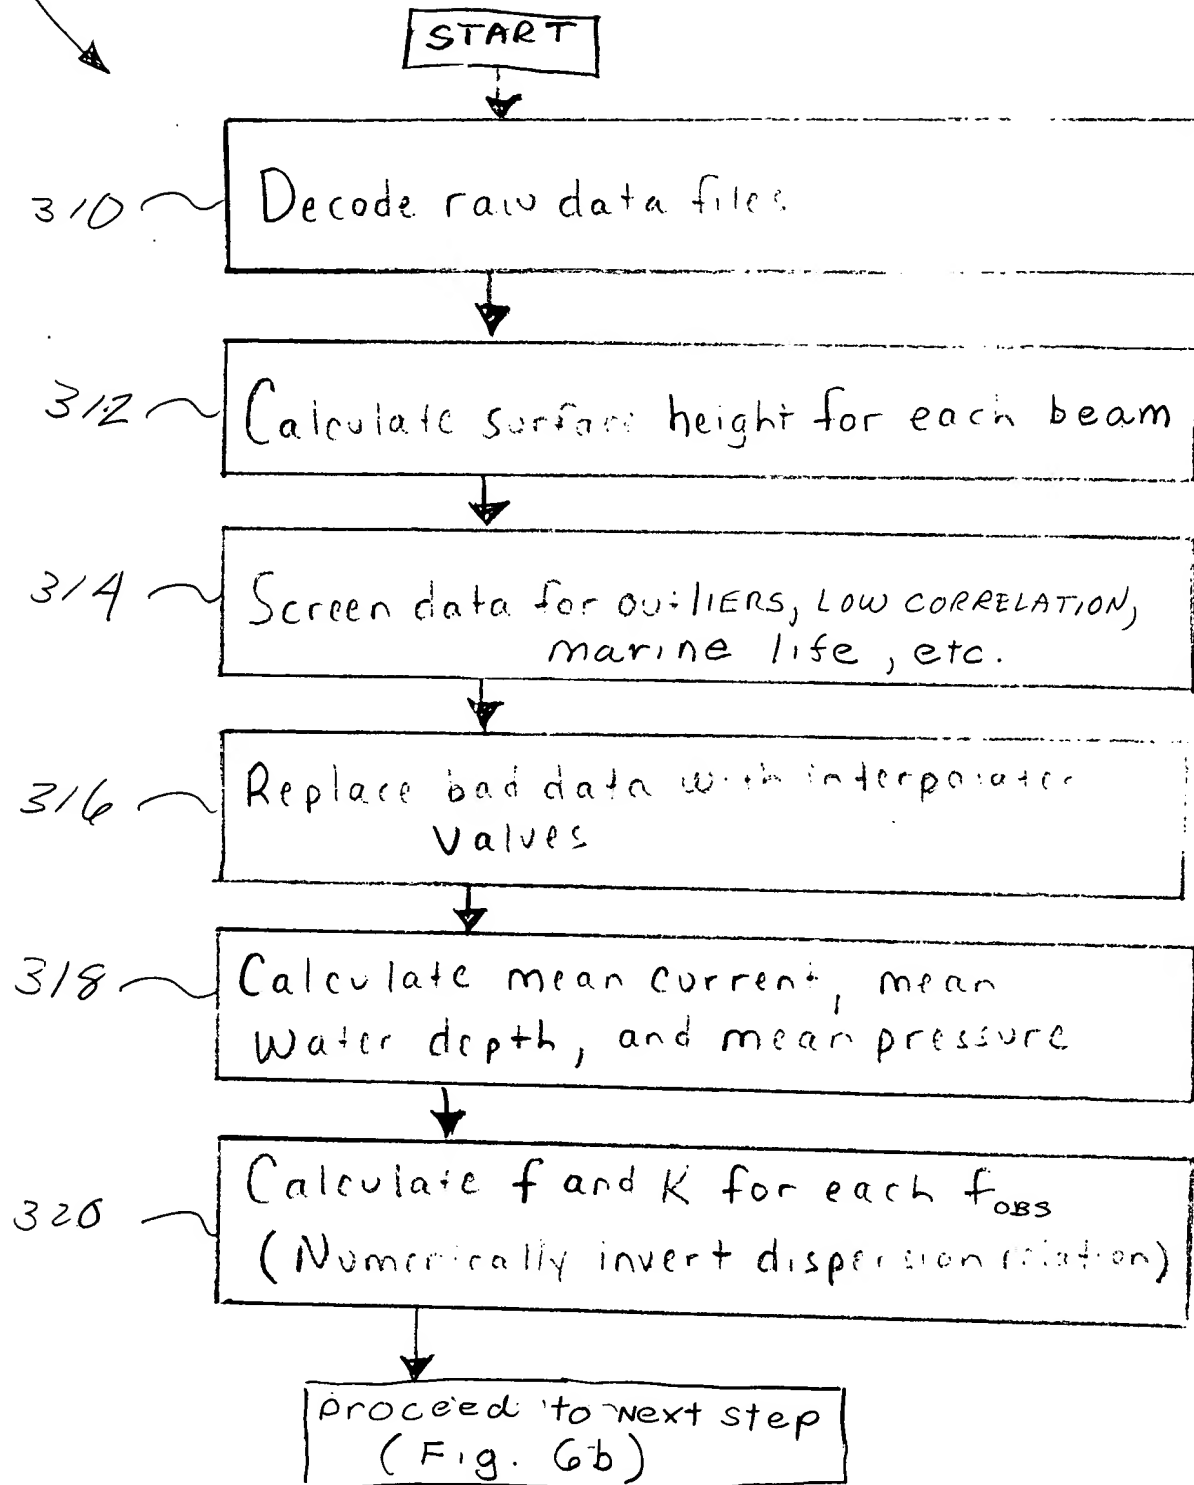 START
310
Decode raw data files
312
Calculate surface height for each beam
314
Screen data for outlIERS, LOW CORRELATION,
marine life, etc.
316
Replace bad data with interpolated
values
318
Calculate mean current, mean
water depth, and mean pressure
320
Calculate f and K for each fOBS
(Numerically invert dispersion relation)
proceed to Next step
(Fig. 6b)